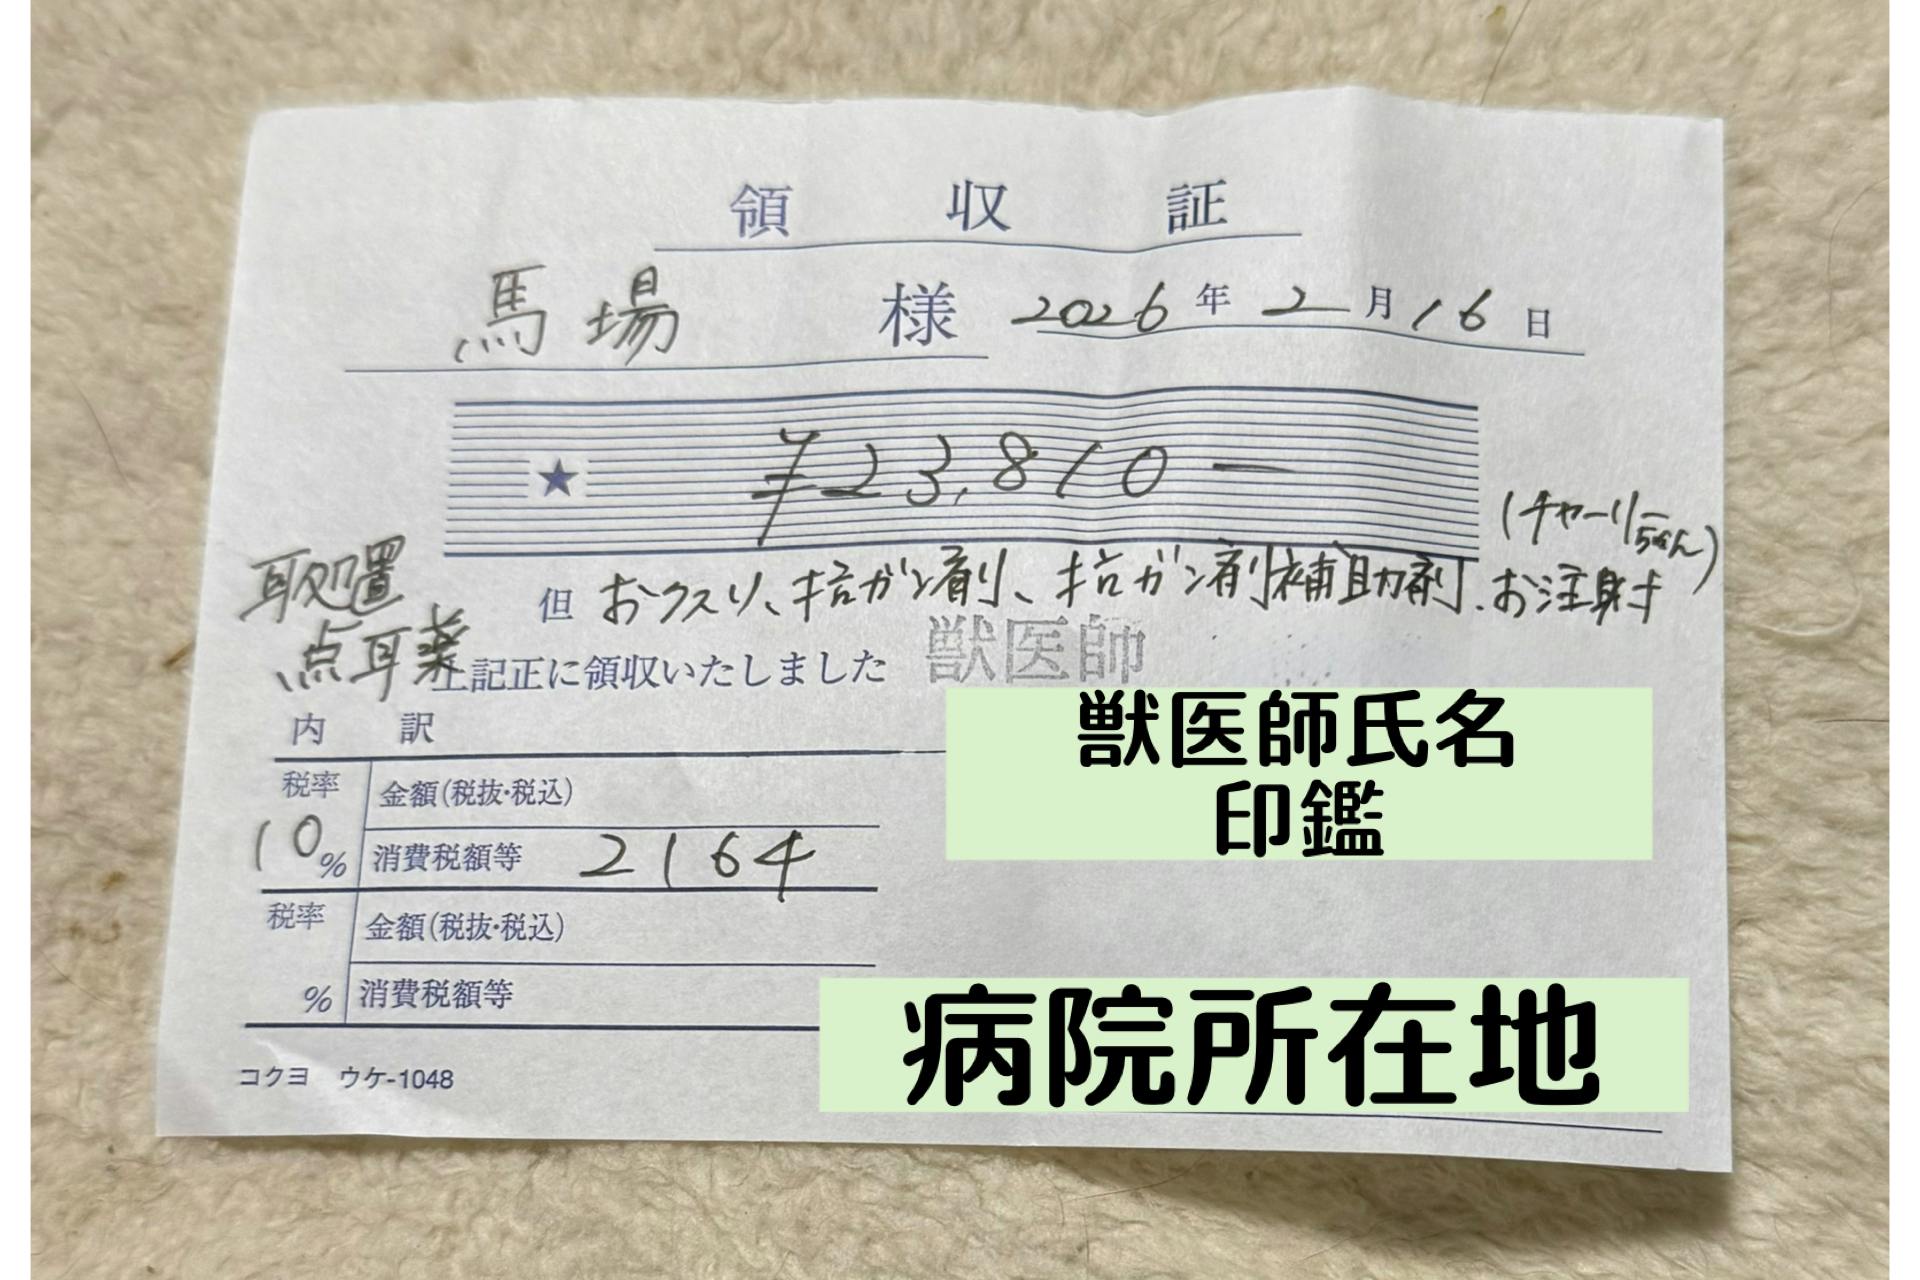 領収証
馬場 様 2026年2月16日
★ ¥23,810-
(チャーリーちゃん)
耳処置
但 おクスリ、抗ガン剤、抗ガン剤補助剤、お注射
点耳薬
上記正に領収いたしました
獣医師
獣医師氏名
印鑑
内訳
税率 10% 金額(税抜・税込)
消費税額等 2164
税率 % 金額(税抜・税込)
消費税額等
病院所在地
コクヨ ウケ-1048